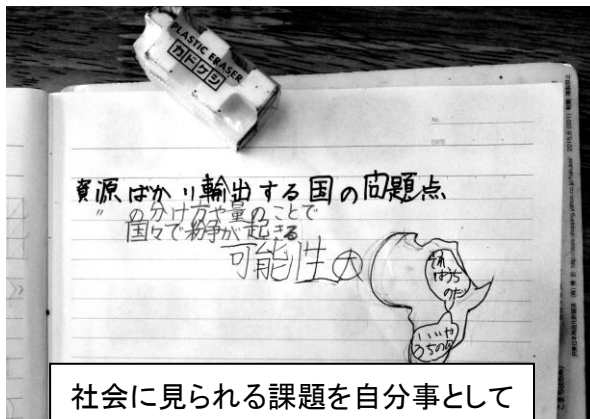 PLASTIC ERASER
カドケシ
No.
DATE
資源ばかり輸出する国の問題点
〃 の分け方や量のことで
国々で紛争が起きる
可能性大
それ
はうち
のだ
いいや
うちの
社会に見られる課題を自分事として